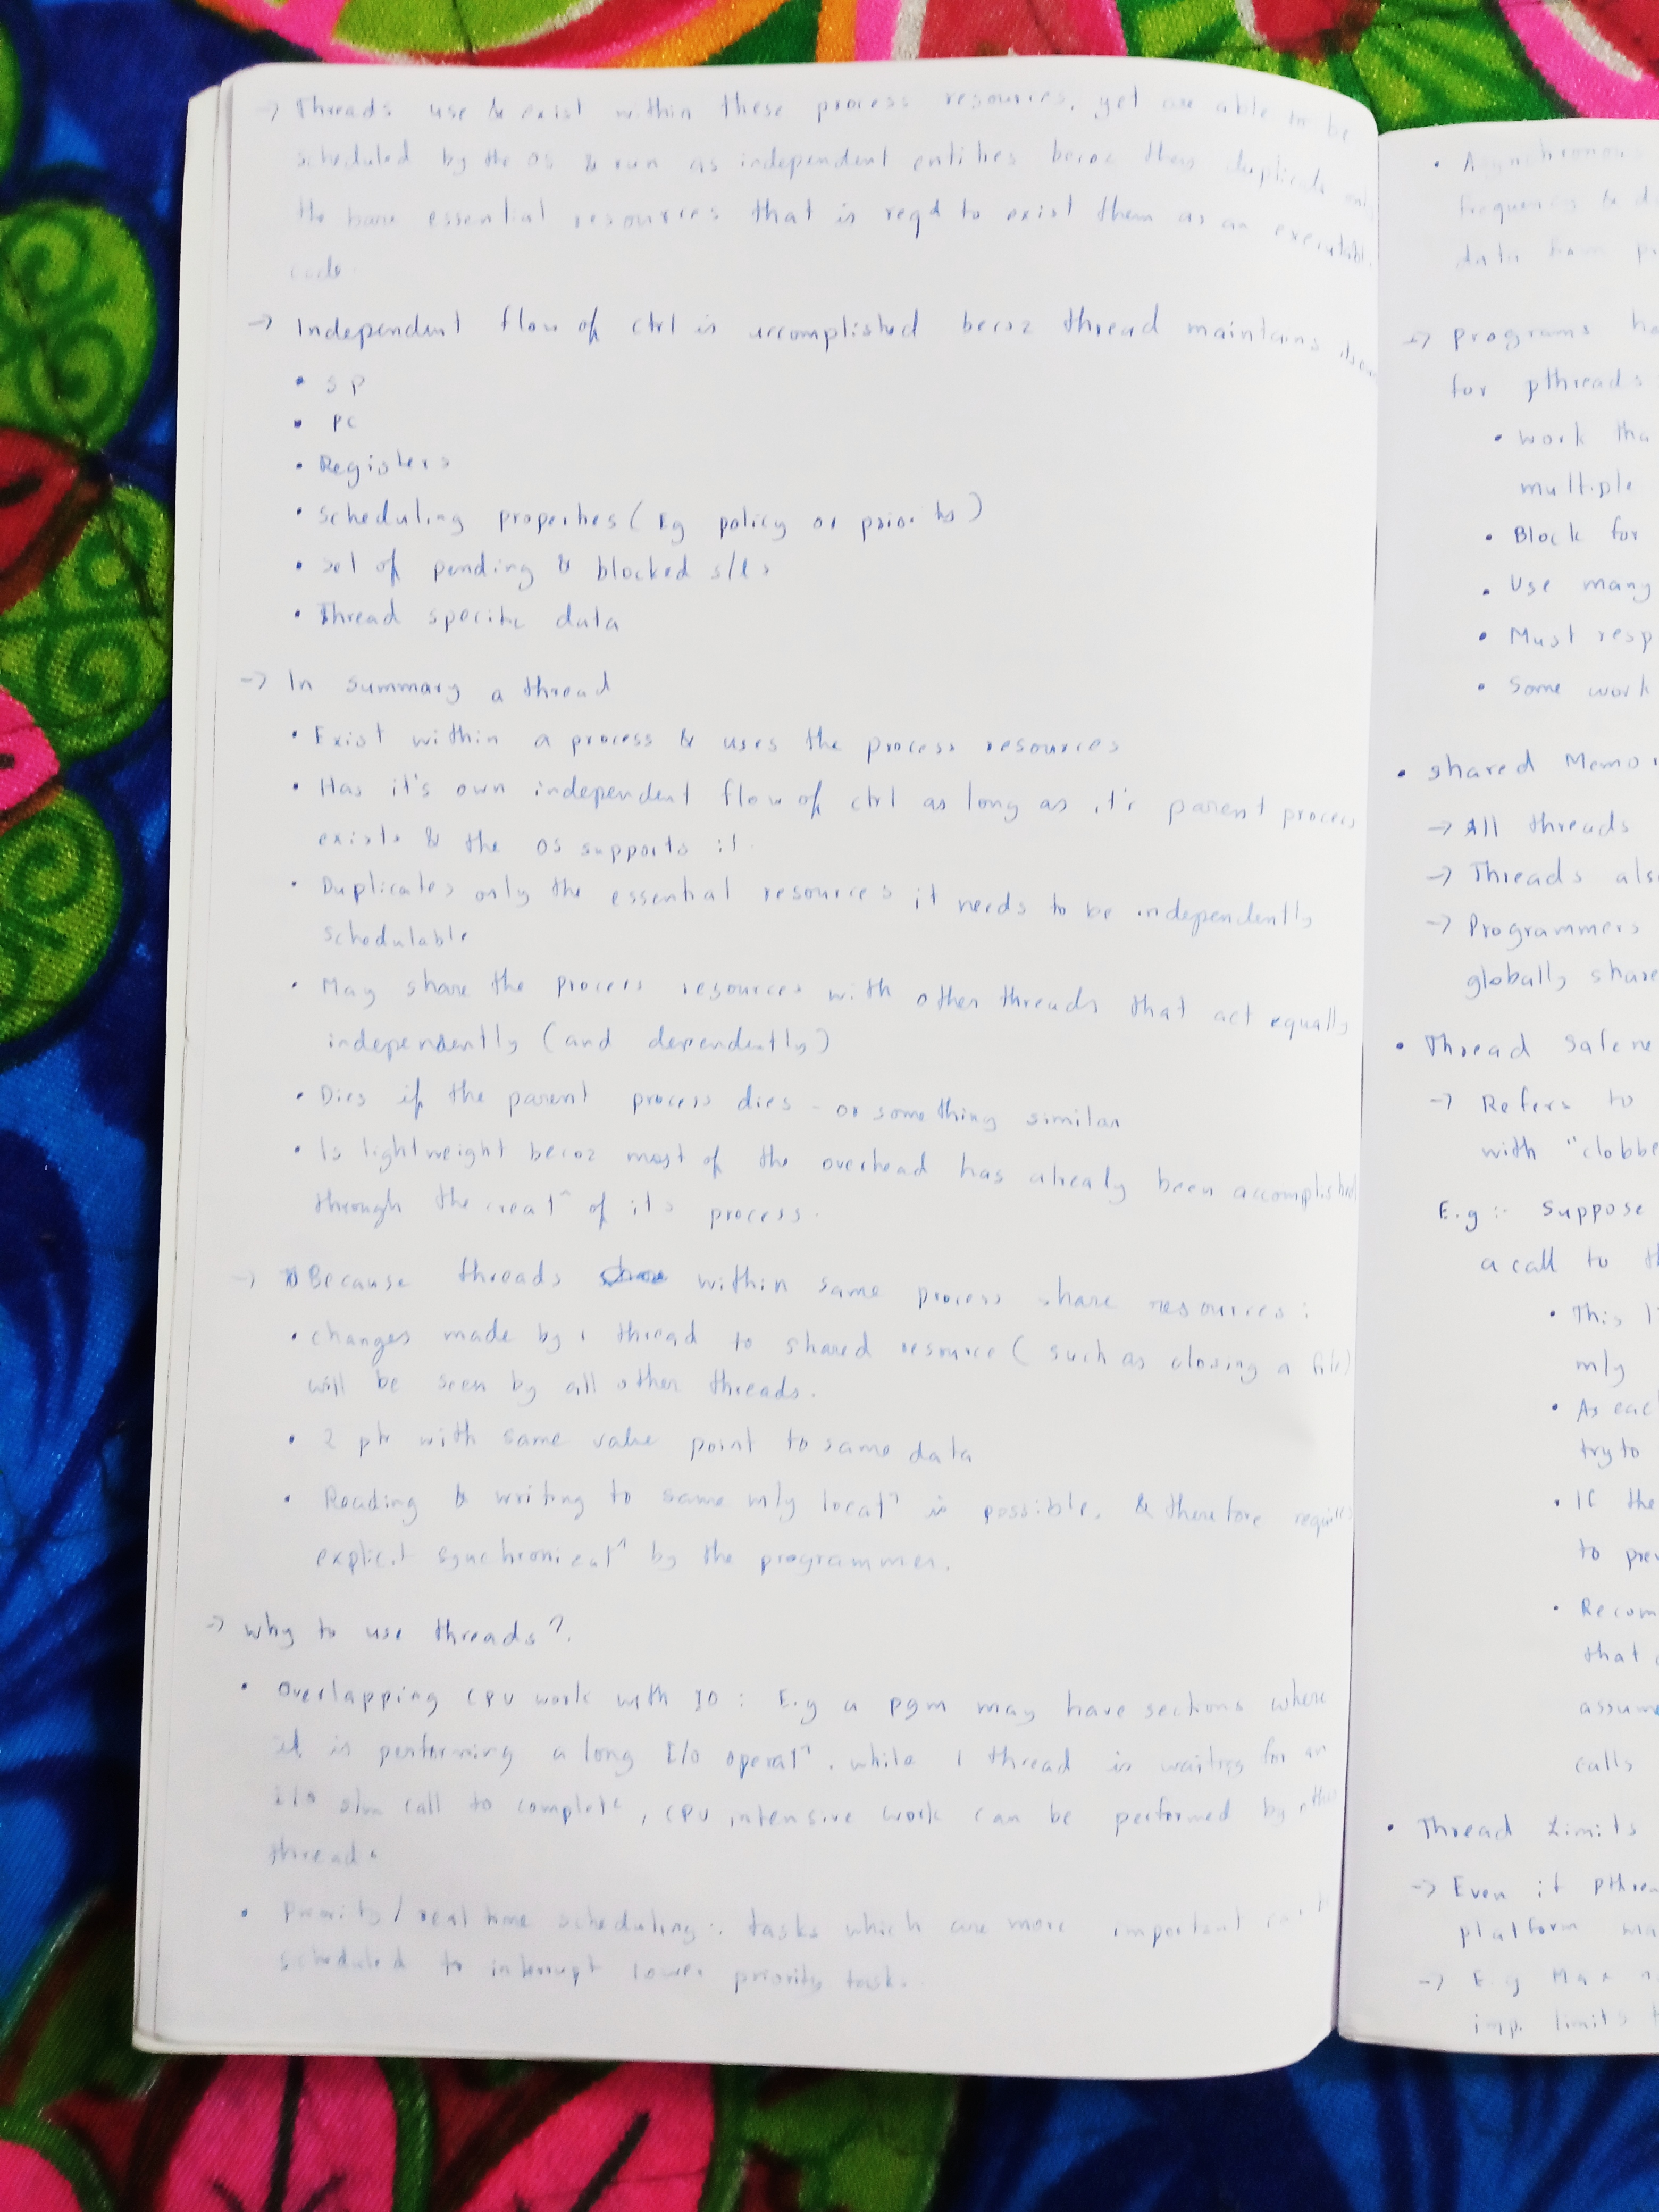 → Threads use & exist within these process resources, yet are able to be
scheduled by the OS & run as independent entities becoz they duplicate only
the bare essential resources that is reqd to exist them as an executable
code.
→ Independent flow of ctrl is accomplished becoz thread maintains its own
• SP
• PC
• Registers
• Scheduling properties (Eg policy or priority)
• Set of pending & blocked s/ls
• Thread specific data
→ In summary a thread
• Exist within a process & uses the process resources
• Has it's own independent flow of ctrl as long as it's parent process
exists & the OS supports it.
• Duplicates only the essential resources it needs to be independently
schedulable
• May share the process resources with other threads that act equally
independently (and dependently)
• Dies if the parent process dies - or something similar
• Is lightweight becoz most of the overhead has already been accomplished
through the creat^ of its process.
→ Because threads within same process share resources:
• changes made by 1 thread to shared resource (such as closing a file)
will be seen by all other threads.
• 2 ptr with same value point to same data
• Reading & writing to same m/y locat^ is possible, & therefore requires
explicit synchronizat^ by the programmer.
→ Why to use threads?
• Overlapping CPU work with IO : E.g a pgm may have sections where
it is performing a long I/o operat^. while 1 thread is waiting for an
I/o s/m call to complete, CPU intensive work can be performed by other
threads
• Priority / real time scheduling:. tasks which are more important can be
scheduled to interrupt lower priority tasks.
• Asynchronous
frequency & d
data from p
→ Programs ha
for pthreads
• Work tha
multiple
• Block for
• Use many
• Must resp
• Some work
• Shared Memor
→ All threads
→ Threads als
→ Programmers
globally share
• Thread Safene
→ Refers to
with "clobbe
E.g :- Suppose
a call to th
• This li
m/y
• As eac
try to
• If the
to prev
• Recom
that
assum
calls
• Thread Limits
→ Even if pthrea
platform ma
→ E.g Max n
imp. limits